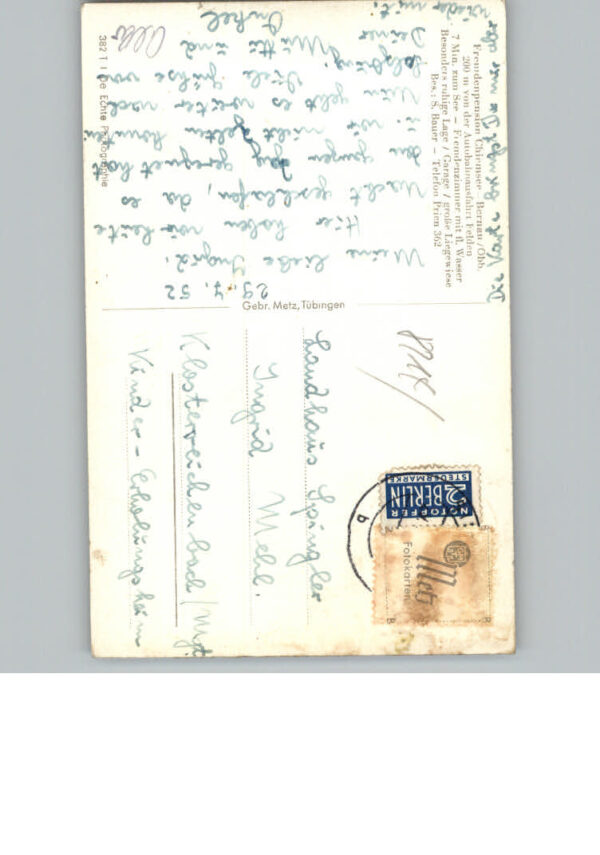 Fremdenpension Chiemsee - Bernau/Obb.
200 m von der Autobahnausfahrt Felden
7 Min. zum See - Fremdenzimmer mit fl. Wasser
Besonders ruhige Lage / Garage / große Liegewiese
Bes.: S. Bauer - Telefon Prien 362
29.7.52
Meine liebe Ingrid.
Hier haben wir heute
Nacht geschlafen, da es
den ganzen Tag geregnet hat
u. wir nicht zelten konnten
Nun geht es weiter nach
Salzburg. Viele Grüße von
Deiner Mutti und
Onkel
Die Karte bringst Du mir aber
wieder mit.
382 T I De Echte Photographie
Gebr. Metz, Tübingen
Landhaus Spingler
Ingrid Mehl.
Klosterreichenbach/Mgt.
Kinder-Erholungsheim
NOTOPFER
2 BERLIN
STEUERMARKE
Metz
Fotokarten
b